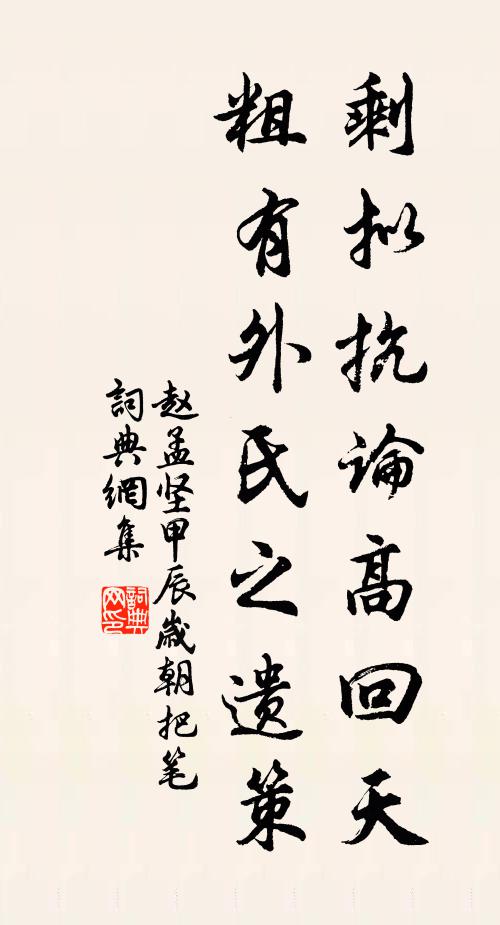 剩拟抗論高回天
粗有外氏之遗策
赵孟坚甲辰岁朝把笔
詞典網集
詞典网印